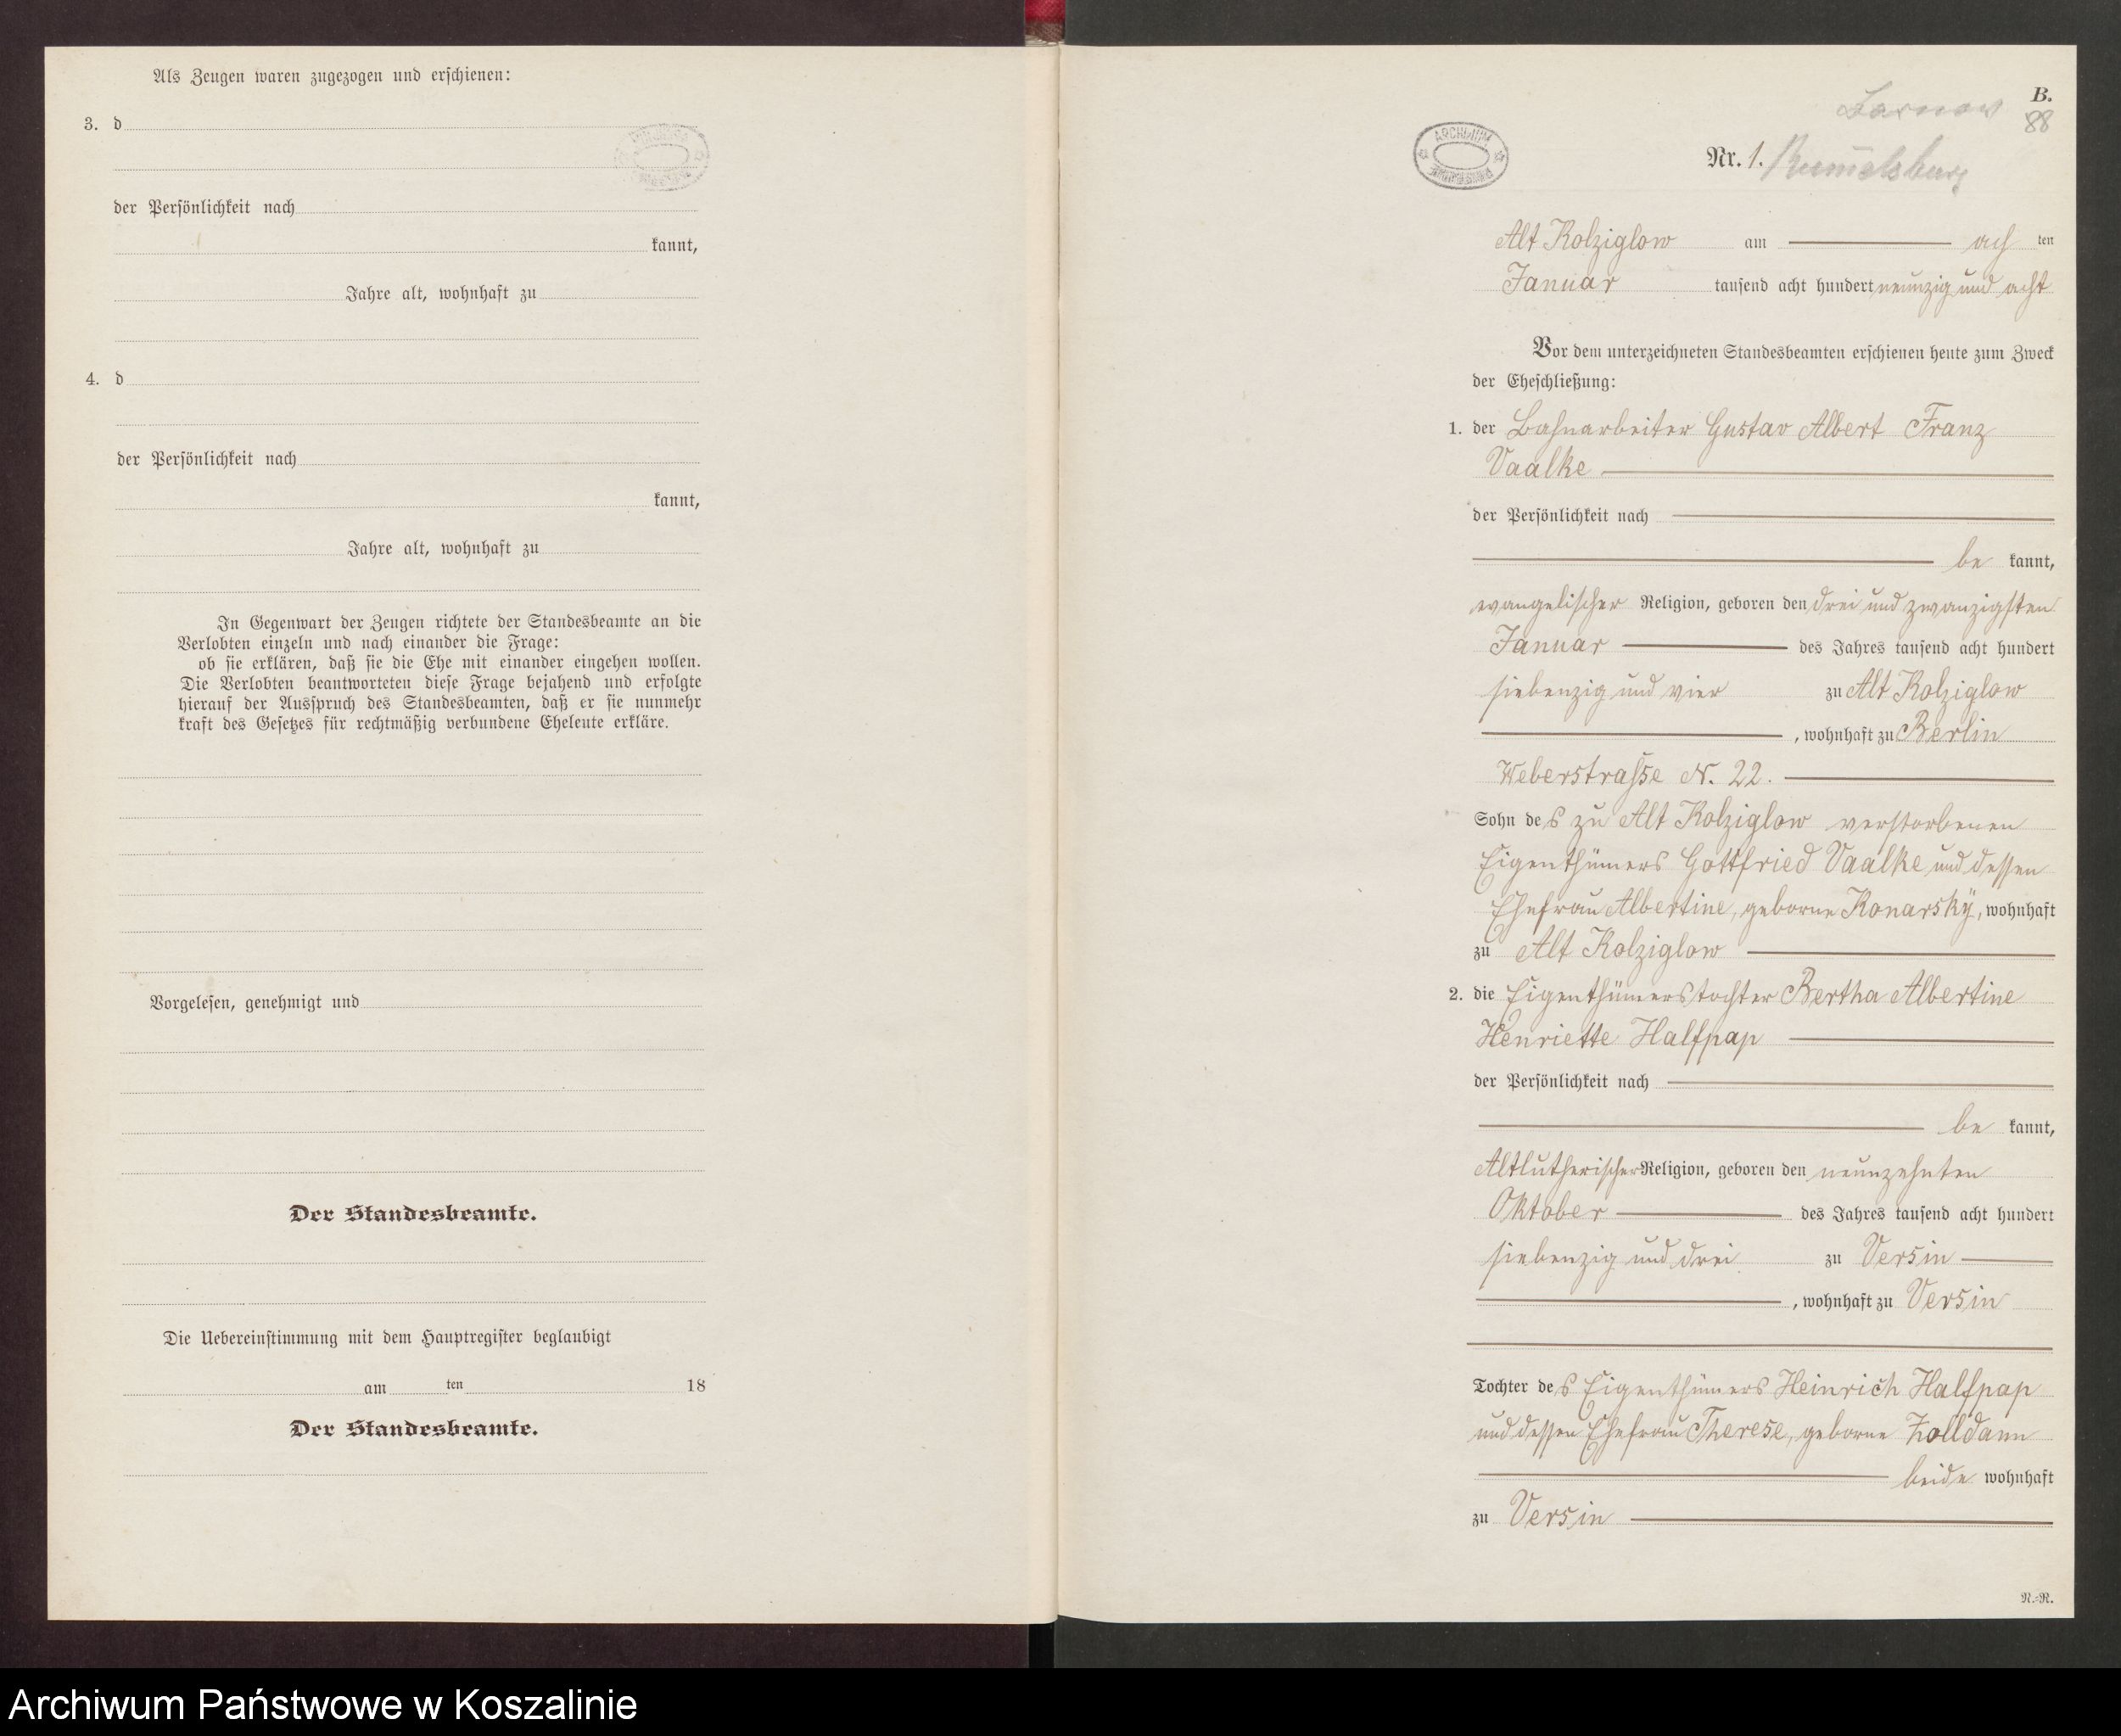 Als Zeugen waren zugezogen und erschienen:
3. d
der Persönlichkeit nach
kannt,
Jahre alt, wohnhaft zu
4. d
der Persönlichkeit nach
kannt,
Jahre alt, wohnhaft zu
In Gegenwart der Zeugen richtete der Standesbeamte an die
Verlobten einzeln und nach einander die Frage:
ob sie erklären, daß sie die Ehe mit einander eingehen wollen.
Die Verlobten beantworteten diese Frage bejahend und erfolgte
hierauf der Ausspruch des Standesbeamten, daß er sie nunmehr
kraft des Gesetzes für rechtmäßig verbundene Eheleute erkläre.
Vorgelesen, genehmigt und
Der Standesbeamte.
Die Uebereinstimmung mit dem Hauptregister beglaubigt
am ten 18
Der Standesbeamte.
B.
88
ARCHIWUM
Nr. 1. Rummelsburg
Alt Kolziglow am ach ten
Januar tausend acht hundert neunzig und acht
Vor dem unterzeichneten Standesbeamten erschienen heute zum Zweck
der Eheschließung:
1. der Bahnarbeiter Gustav Albert Franz
Vaalke
der Persönlichkeit nach
be kannt,
evangelischer Religion, geboren den drei und zwanzigsten
Januar des Jahres tausend acht hundert
siebenzig und vier zu Alt Kolziglow
, wohnhaft zu Berlin
Weberstraße N. 22.
Sohn des zu Alt Kolziglow verstorbenen
Eigenthümers Gottfried Vaalke und dessen
Ehefrau Albertine, geborne Konarsky, wohnhaft
zu Alt Kolziglow
2. die Eigenthümerstochter Bertha Albertine
Henriette Halfpap
der Persönlichkeit nach
be kannt,
Altlutherischer Religion, geboren den neunzehnten
Oktober des Jahres tausend acht hundert
siebenzig und drei zu Versin
, wohnhaft zu Versin
Tochter des Eigenthümers Heinrich Halfpap
und dessen Ehefrau Therese, geborne Zolldann
beide wohnhaft
zu Versin
N.-R.
Archiwum Państwowe w Koszalinie